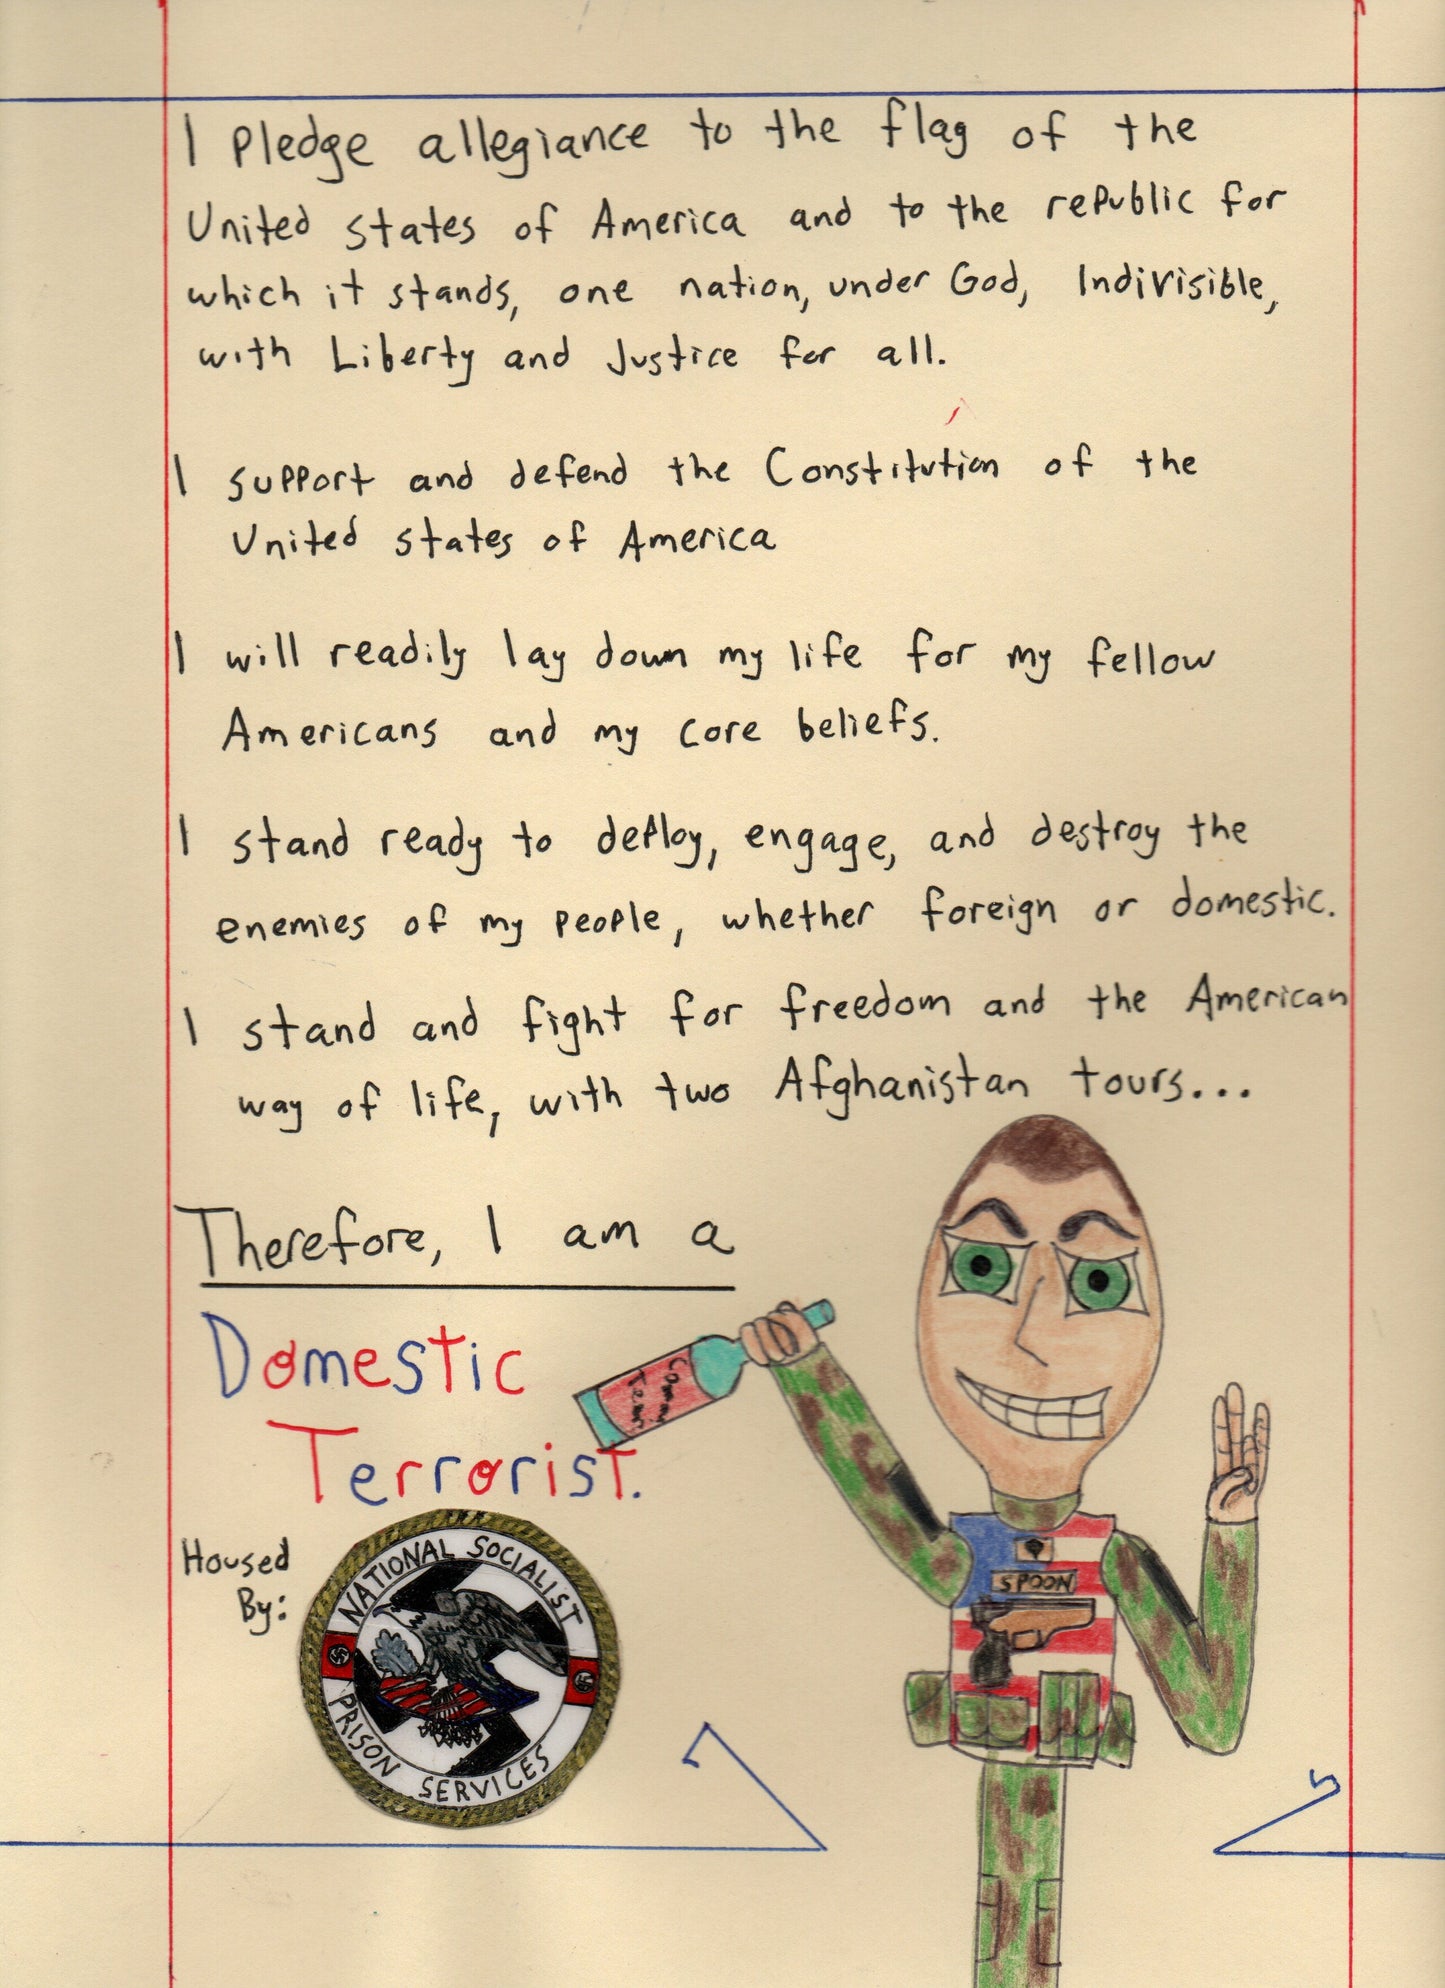 I Pledge allegiance to the flag of the
United states of America and to the republic for
which it stands, one nation, under God, Indivisible,
with Liberty and Justice for all.
I support and defend the Constitution of the
United states of America
I will readily lay down my life for my fellow
Americans and my core beliefs.
I stand ready to deploy, engage, and destroy the
enemies of my people, whether foreign or domestic.
I stand and fight for freedom and the American
way of life, with two Afghanistan tours...
Therefore, I am a
Domestic
Terrorist.
SPOON
Housed
By:
NATIONAL SOCIALIST
PRISON SERVICES